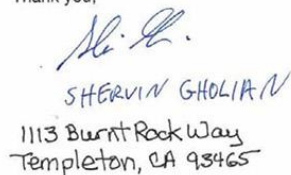 Thank you,
SHERVIN GHOLIAN
1113 Burnt Rock Way
Templeton, CA 93465